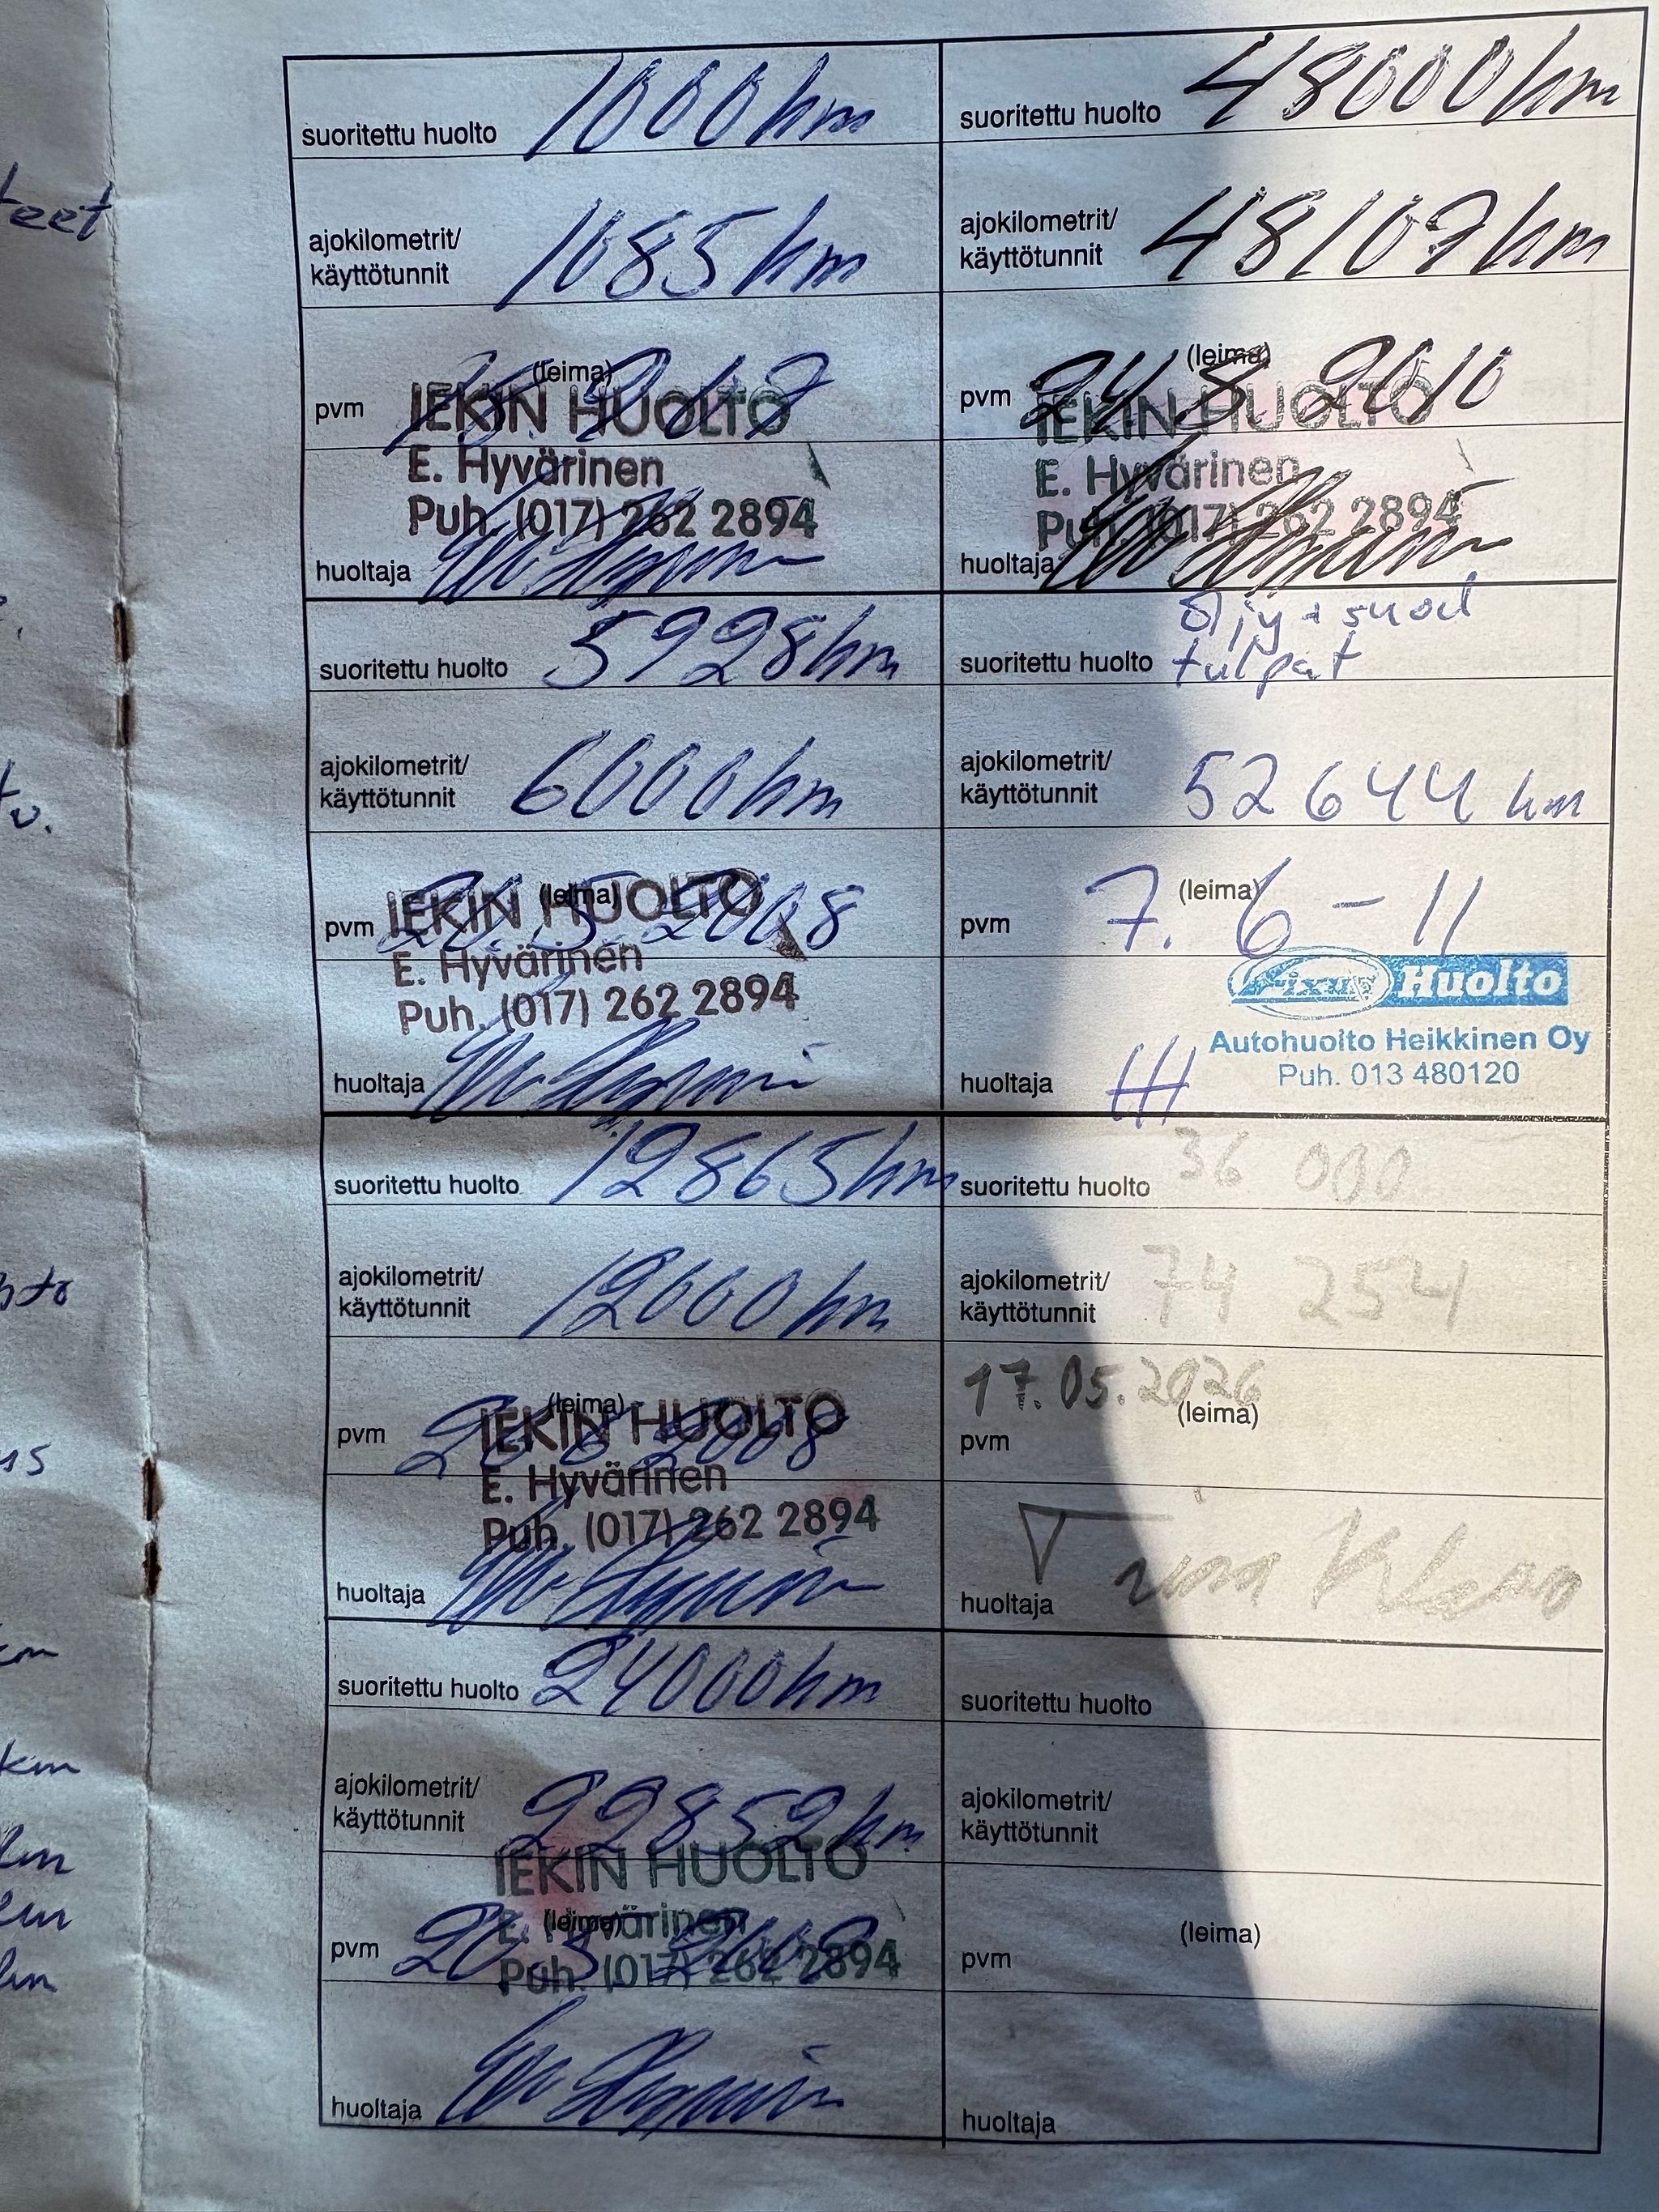 teet
suoritettu huolto 1000 km
ajokilometrit/
käyttötunnit 1085 km
(leima)
pvm
IEKIN HUOLTO
E. Hyvärinen
Puh. (017) 262 2894
huoltaja
suoritettu huolto 5928 km
ajokilometrit/
käyttötunnit 6000 km
(leima)
pvm 20.5.2008
IEKIN HUOLTO
E. Hyvärinen
Puh. (017) 262 2894
huoltaja
suoritettu huolto 12865 km
ajokilometrit/
käyttötunnit 12000 km
(leima)
pvm
IEKIN HUOLTO
E. Hyvärinen
Puh. (017) 262 2894
huoltaja
suoritettu huolto 24000 km
ajokilometrit/
käyttötunnit 22852 km
IEKIN HUOLTO
E. Hyvärinen
(leima)
pvm
Puh. (017) 262 2894
huoltaja
suoritettu huolto 48000 km
ajokilometrit/
käyttötunnit 48109 km
(leima)
pvm 24.8 2010
IEKIN HUOLTO
E. Hyvärinen
Puh. (017) 262 2894
huoltaja
öljy + suod
suoritettu huolto tulpat
ajokilometrit/
käyttötunnit 52644 km
(leima)
pvm 7. 6 - 11
Fixus Huolto
Autohuolto Heikkinen Oy
Puh. 013 480120
huoltaja HH
suoritettu huolto 36 000
ajokilometrit/
käyttötunnit 74 254
17.05.2026
(leima)
pvm
huoltaja
suoritettu huolto
ajokilometrit/
käyttötunnit
(leima)
pvm
huoltaja